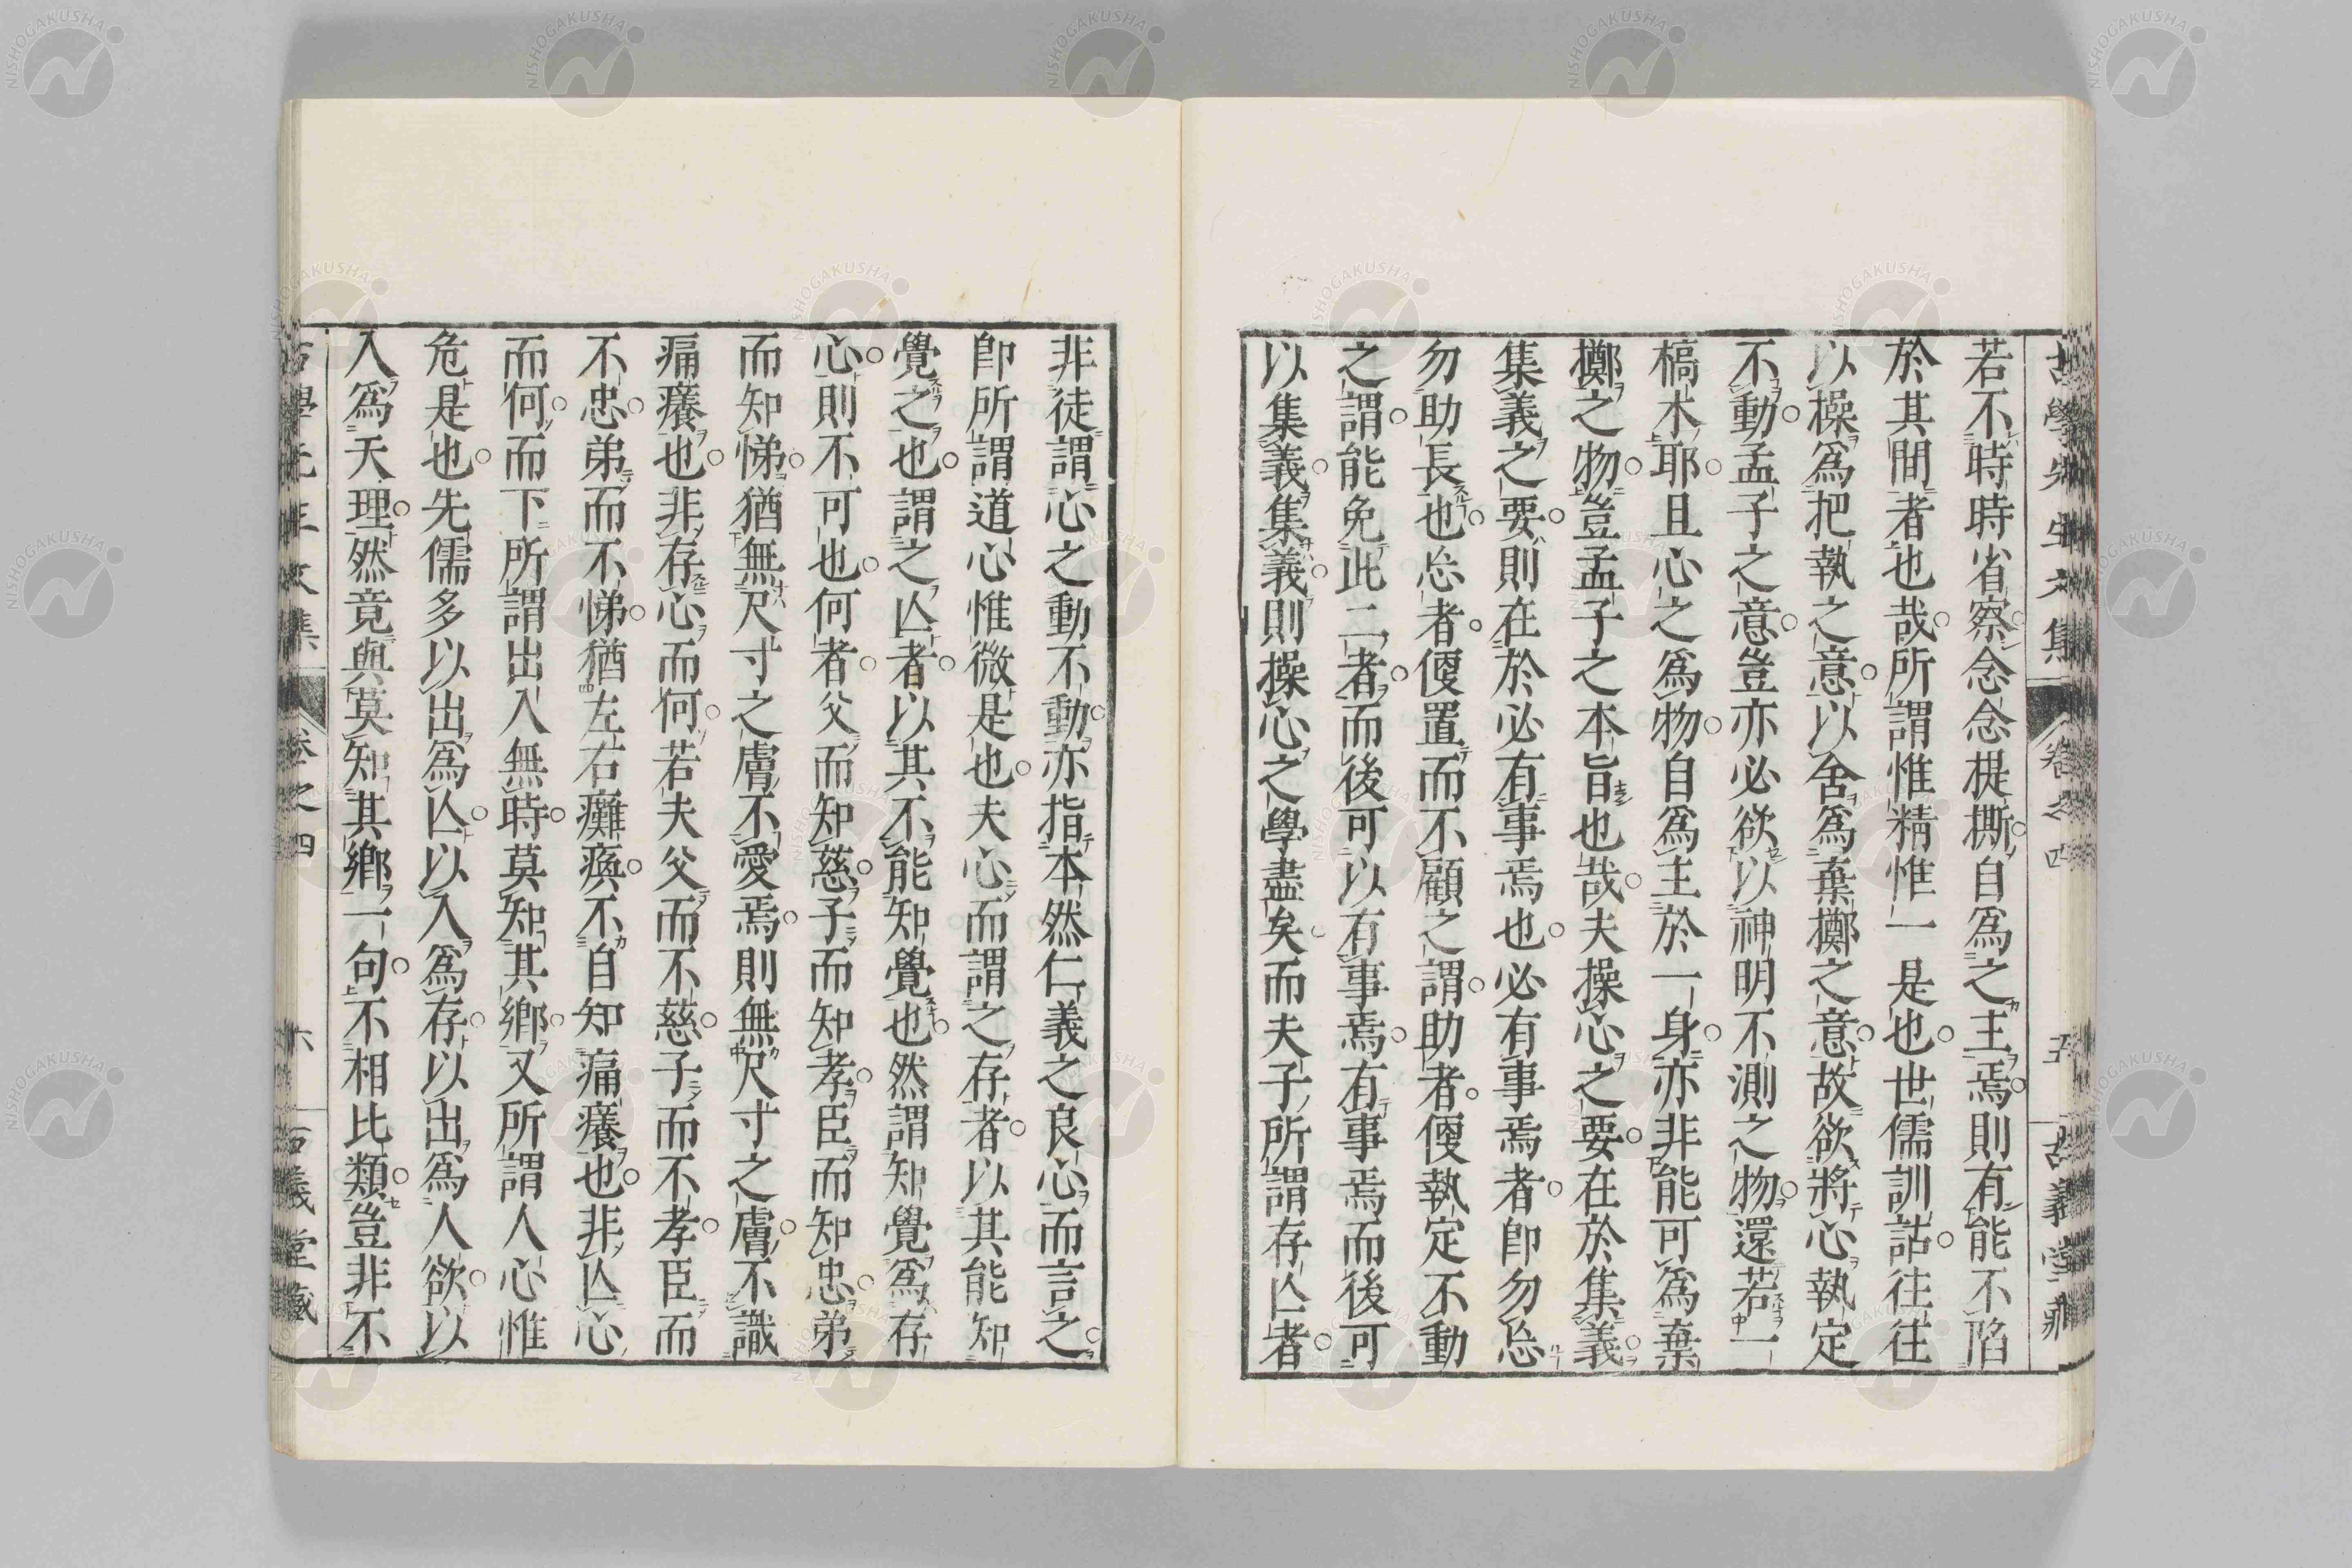 古學先生文集 卷之四 五 古義堂藏
若不時時省察念念提撕自爲之主焉則有能不陷
於其間者也哉所謂惟精惟一是也世儒訓詁往往
以操爲把執之意以舍爲棄擲之意故欲將心執定
不動孟子之意豈亦必欲以神明不測之物還若一
槁木耶且心之爲物自爲主於一身亦非能可爲棄
擲之物豈孟子之本旨也哉夫操心之要在於集義
集義之要則在於必有事焉也必有事焉者卽勿忘
勿助長也忘者便置而不顧之謂助者便執定不動
之謂能免此二者而後可以有事焉有事焉而後可
以集義集義則操心之學盡矣而夫子所謂存亾者
非徒謂心之動不動亦指本然仁義之良心而言之
卽所謂道心惟微是也夫心而謂之存者以其能知
覺之也謂之亾者以其不能知覺也然謂知覺爲存
心則不可也何者父而知慈子而知孝臣而知忠弟
而知悌猶無尺寸之膚不愛焉則無尺寸之膚不識
痛癢也非存心而何若夫父而不慈子而不孝臣而
不忠弟而不悌猶左右癱瘓不自知痛癢也非亾心
而何而下所謂出入無時莫知其鄉又所謂人心惟
危是也先儒多以出爲亾以入爲存以出爲人欲以
入爲天理然竟與莫知其鄉一句不相比類豈非不
古學先生文集 卷之四 六 古義堂藏
NISHOGAKUSHA